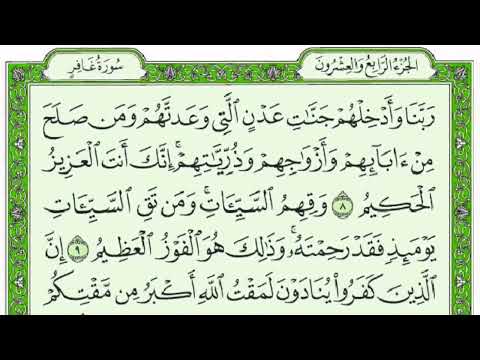 الجُزءُ الرَّابِعُ وَالعِشْرُونَ
سُورَةُ غَافِرٍ
رَبَّنَا وَأَدْخِلْهُمْ جَنَّاتِ عَدْنٍ الَّتِي وَعَدتَّهُمْ وَمَن صَلَحَ
مِنْ ءَابَآئِهِمْ وَأَزْوَاجِهِمْ وَذُرِّيَّاتِهِمْ ۚ إِنَّكَ أَنتَ الْعَزِيزُ
الْحَكِيمُ ٨ وَقِهِمُ السَّيِّئَاتِ ۚ وَمَن تَقِ السَّيِّئَاتِ
يَوْمَئِذٍ فَقَدْ رَحِمْتَهُ ۚ وَذَٰلِكَ هُوَ الْفَوْزُ الْعَظِيمُ ٩ إِنَّ
الَّذِينَ كَفَرُوا يُنَادَوْنَ لَمَقْتُ اللَّهِ أَكْبَرُ مِن مَّقْتِكُمْ